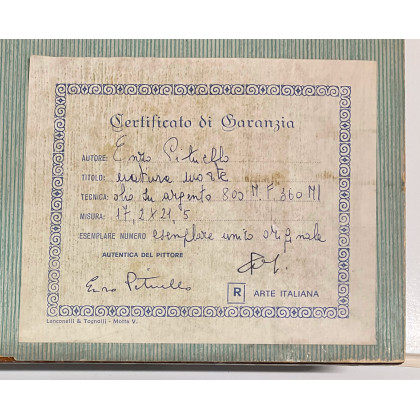 Certificato di Garanzia
AUTORE: Enzo Pituello
TITOLO: natura morte
TECNICA: olio su argento 800 M.F. 360 MI
MISURA: 17,2 x 21,5
ESEMPLARE NUMERO esemplare unico originale
AUTENTICA DEL PITTORE
Enzo Pituello
R ARTE ITALIANA
Lanconelli & Tognolli - Motta V.